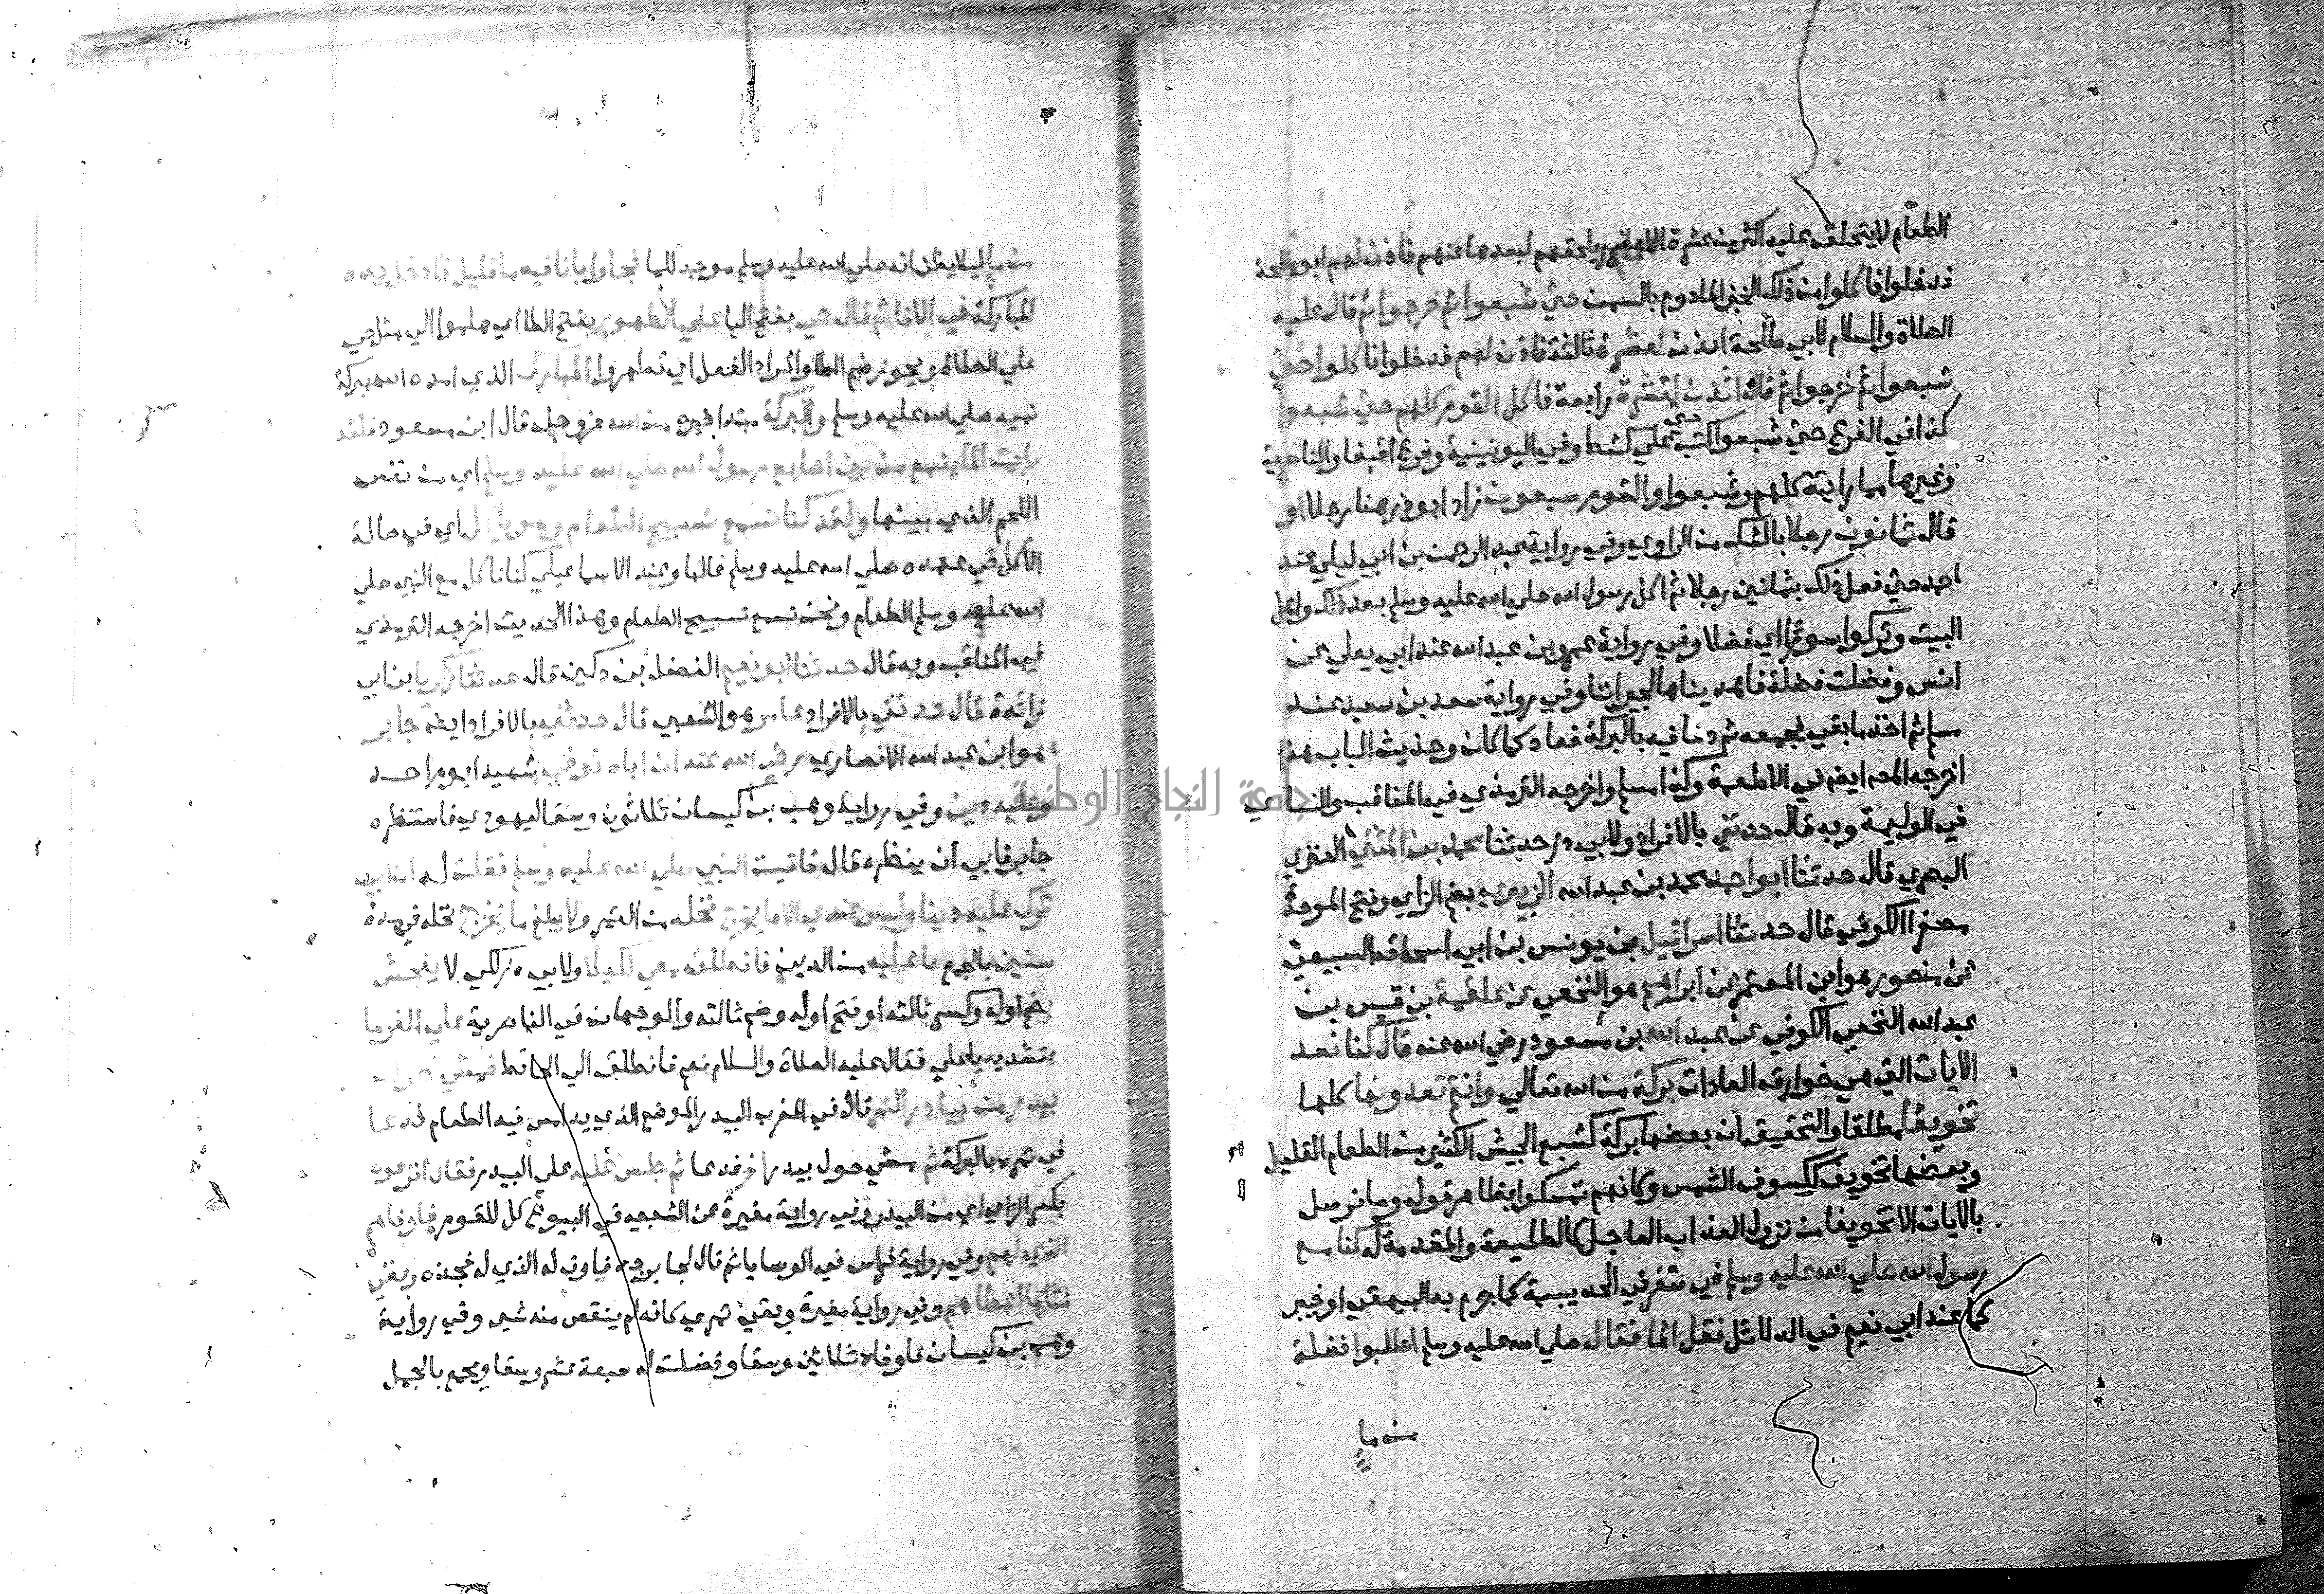 الطعام لا يتحلق عليه اكثر من عشرة الا بضرر يلحقهم لبعدها عنهم فاذن لهم ابو طلحة
فدخلوا فاكلوا من ذلك الخبز المادوم بالسمن حتي شبعوا ثم خرجوا ثم قال عليه
الصلاة والسلام لابي طلحة ائذن لعشرة ثالثة فاذن لهم فدخلوا فاكلوا حتي
شبعوا ثم خرجوا ثم قال ائذن لعشرة رابعة فاكل القوم كلهم حتي شبعوا
كذا في الفرع حتي شبعوا كتب حتي علي كشط وفي اليونينية وفرع اقبغا والناصرية
وغيرها مما رايته كلهم وشبعوا والقوم سبعون زاد ابو ذر هنا رجلا او
قال ثمانون رجلا بالشك من الراوي وفي رواية عبد الرحمن بن ابي ليلي عند
احمد حتي فعل ذلك بثمانين رجلا ثم اكل رسول الله صلي الله عليه وسلم بعد ذلك واهل
البيت وتركوا سؤرا اي فضلا وفي رواية عمرو بن عبد الله عند ابي يعلي عن
انس وفضلت فضلة فاهديناها لجيراننا وفي رواية سعد بن سعيد عند
مسلم ثم اخذ ما بقي فجمعه ثم دعا فيه بالبركة فعاد كما كان وحديث الباب هذا
اخرجه المص ايض في الاطعمة وكذا مسلم واخرجه الترمذي في المناقب والنساي
في الوليمة وبه قال حدثني بالافراد ولابي ذر حدثنا محمد بن المثني العنزي
البصري قال حدثنا ابو احمد محمد بن عبد الله الزبيري بضم الزاي وفتح الموحدة
مصغرا الكوفي قال حدثنا اسرائيل بن يونس بن ابي اسحاق السبيعي
عن منصور هو ابن المعتمر عن ابراهيم هو النخعي عن علقمة بن قيس بن
عبد الله النخعي الكوفي عن عبد الله بن مسعود رضي الله عنه قال كنا نعد
الايات التي هي خوارق العادات بركة من الله تعالي وانتم تعدونها كلها
تخويفا مطلقا والتحقيق ان بعضها بركة كشبع الجيش الكثير من الطعام القليل
وبعضها تخويف ككسوف الشمس وكانهم تمسكوا بظاهر قوله وما نرسل
بالايات الا تخويفا من نزول العذاب العاجل كالطليعة والمقدمة له كنا مع
رسول الله صلي الله عليه وسلم في سفر في الحديبية كما جزم به البيهقي او خيبر
كما عند ابي نعيم في الدلائل فقل الما فقال صلي الله عليه وسلم اطلبوا فضلة
من ما
من ما ليلا يظن انه صلي الله عليه وسلم موجد للما فجاوا بانا فيه ما قليل فادخل يده
المباركة في الانا ثم قال حي بفتح اليا علي الطهور بفتح الطا اي هلموا الي مثل حي
علي الصلاة ويجوز ضم الطا والمراد الفعل اي تطهروا المبارك الذي امده الله ببركة
نبيه صلي الله عليه وسلم والبركة مبتدا خبره من الله عز وجل قال ابن مسعود فلقد
رايت الما ينبع من بين اصابع رسول الله صلي الله عليه وسلم اي من نفس
اللحم الذي بينها ولقد كنا نسمع تسبيح الطعام وهو يوكل اي في حالة
الاكل في عهده صلي الله عليه وسلم غالبا وعند الاسماعيلي كنا ناكل مع النبي صلي
الله عليه وسلم الطعام ونحن نسمع تسبيح الطعام وهذا الحديث اخرجه الترمذي
في المناقب وبه قال حدثنا ابو نعيم الفضل بن دكين قال حدثنا زكريا بن ابي
زائدة قال حدثني بالافراد عامر هو الشعبي قال حدثني بالافراد ايض جابر
هو ابن عبد الله الانصاري رضي الله عنه ان اباه توفي شهيدا يوم احد
وعليه دين وفي رواية وهب بن كيسان ثلاثون وسقا ليهودي فاستنظره
جابر فابي ان ينظره قال فاتيت النبي صلي الله عليه وسلم فقلت له ان ابي
ترك عليه دينا وليس عندي الا ما يخرج نخله من الثمر ولا يبلغ ما يخرج نخله في مدة
سنين بالجمع ما عليه من الدين فانطلق معي لكيلا ولابي ذر لكي لا يفحش
بضم اوله وكسر ثالثه او فتح اوله وضم ثالثه والوجهان في الناصرية علي الغرما
بتشديد يا علي فقال عليه الصلاة والسلام نعم فانطلق الي الحائط فمشي حول
بيدر من بيادر التمر قال في المغرب البيدر الموضع الذي يداس فيه الطعام فدعا
في ثمره بالبركة ثم مشي حول بيدر اخر فدعا ثم جلس عليه علي البيدر فقال انزعوه
بكسر الزاي اي من البيدر وفي رواية مغيرة عن الشعبي في البيوع كل للقوم فاوفاهم
الذي لهم وفي رواية فراس في الوصايا ثم قال لجابر جذ فاوف له الذي له فجذه وبقي
مثل ما اعطاهم وفي رواية مغيرة وبقي تمري كانه لم ينقص منه شي وفي رواية
وهب بن كيسان فاوفاه ثلاثين وسقا وفضلت له سبعة عشر وسقا ويجمع بالحمل
جامعة النجاح الوطنية